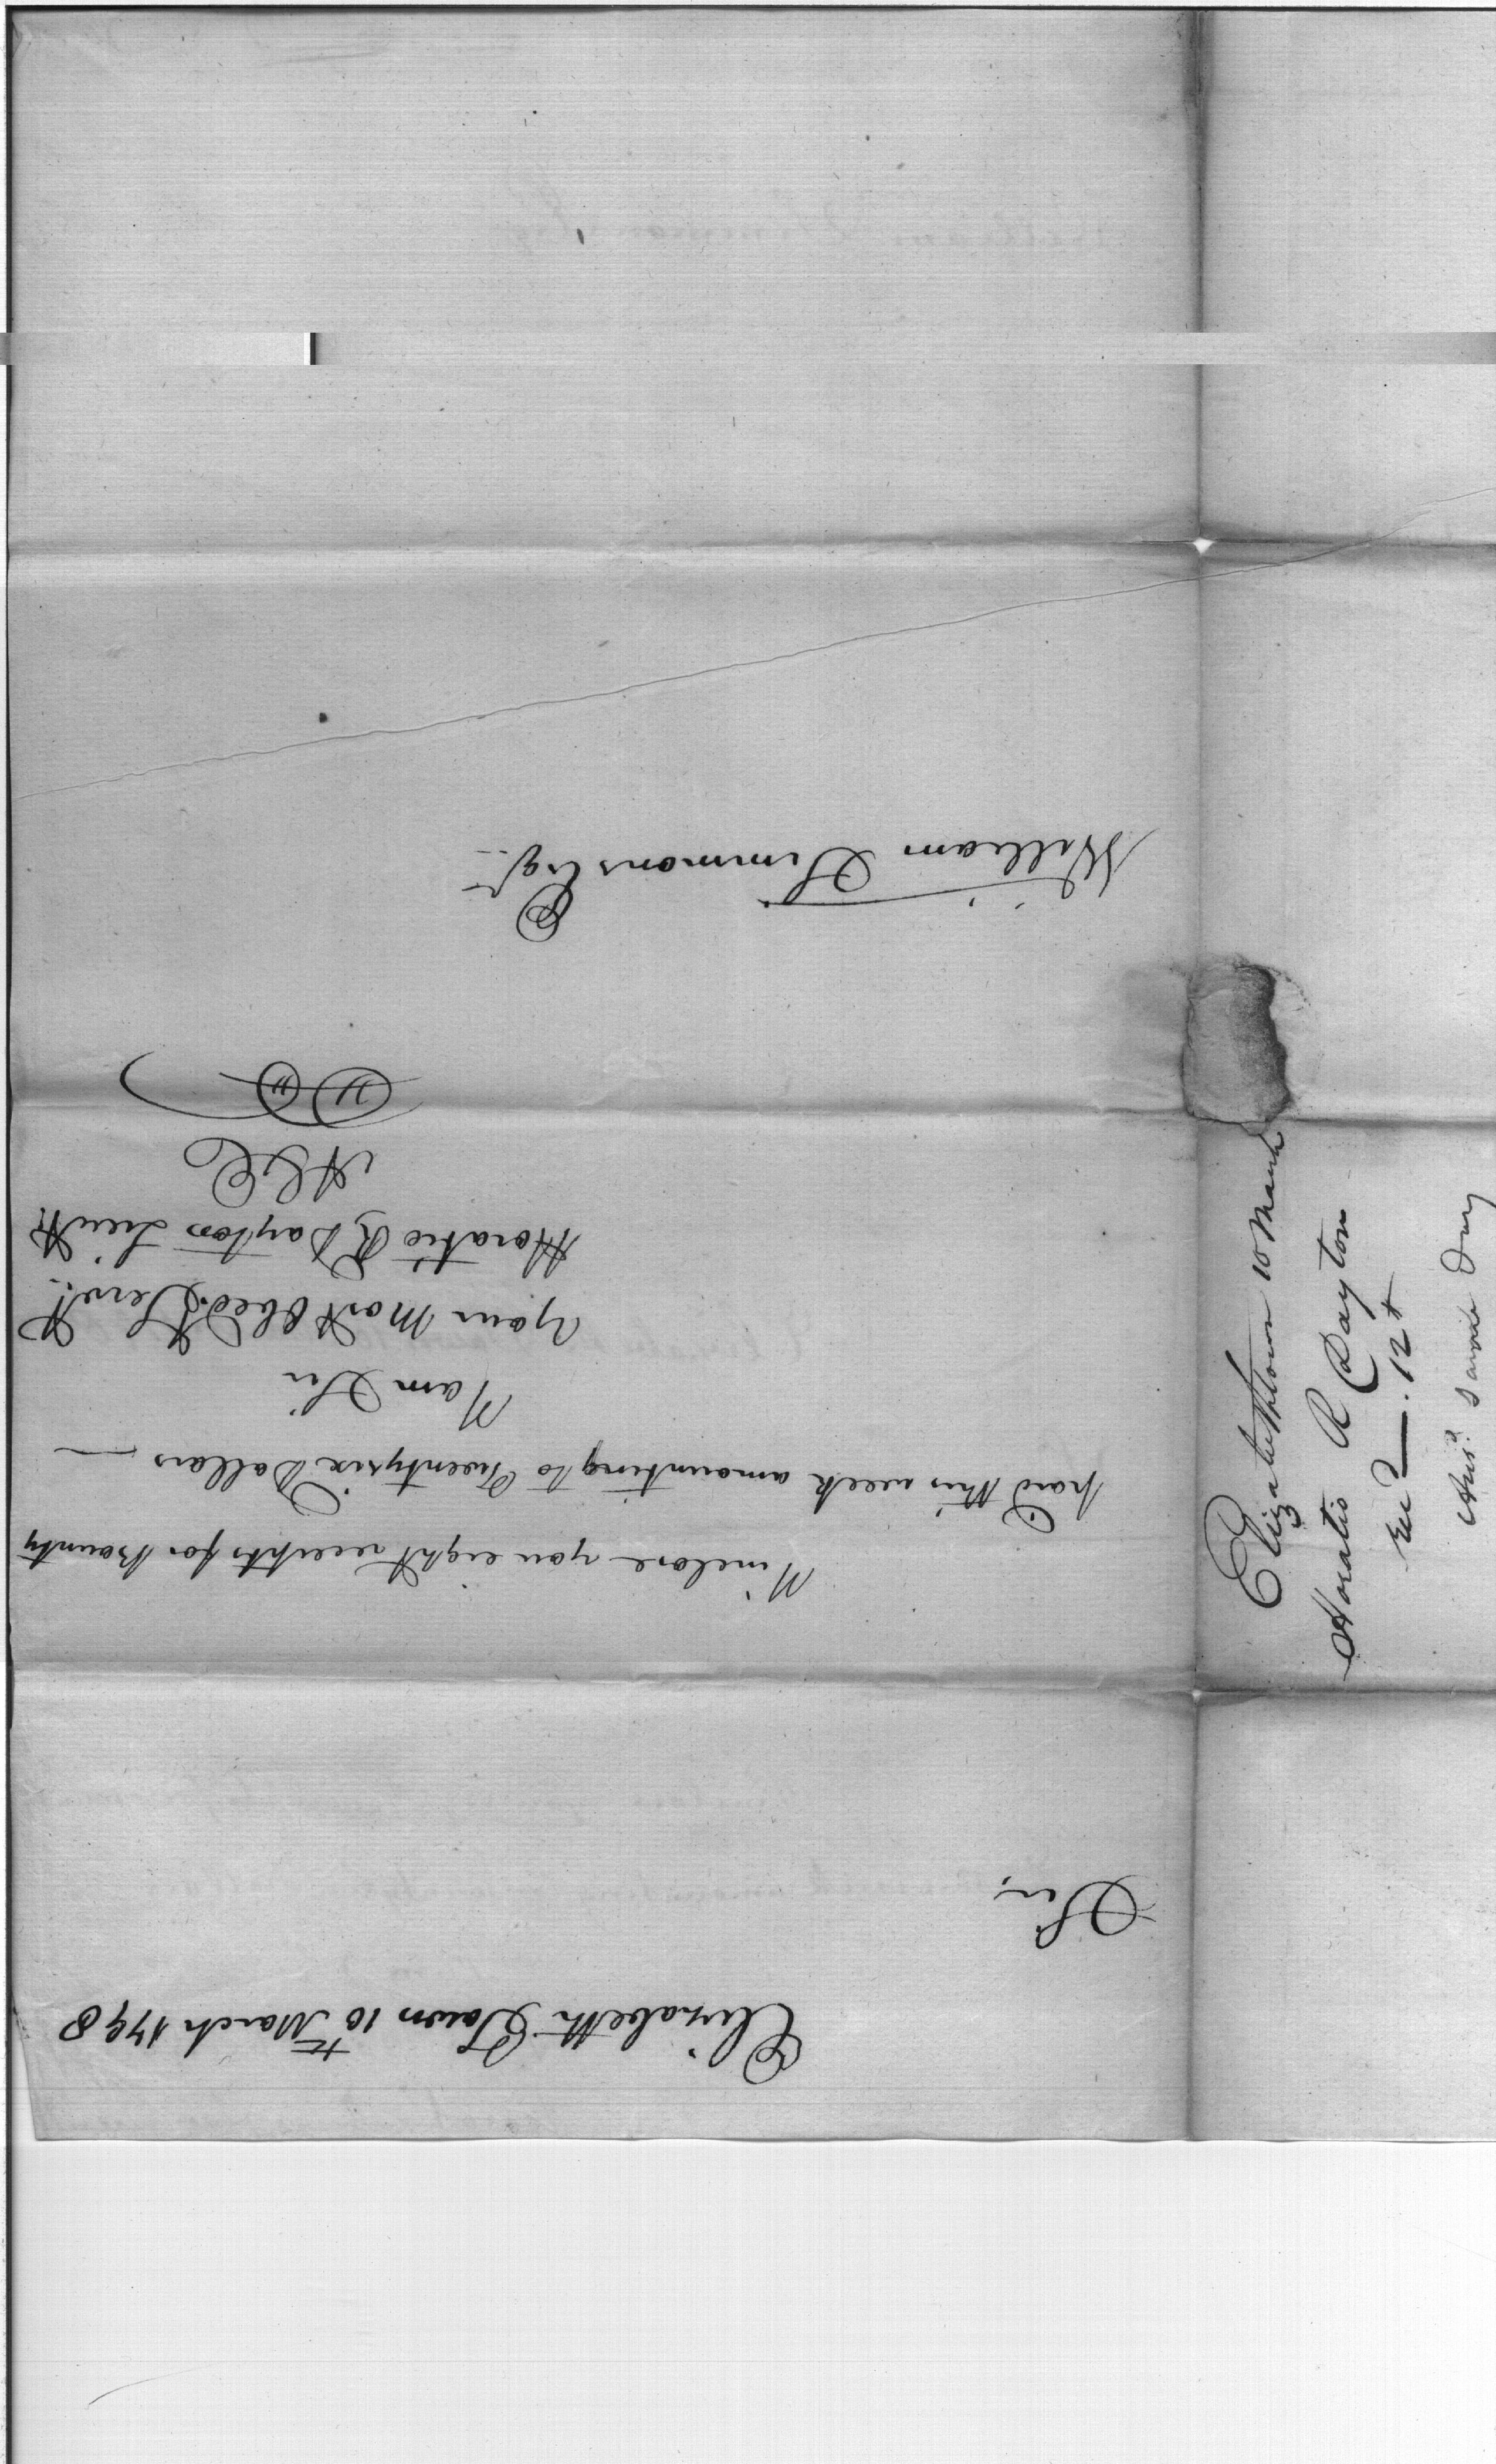 Elizabeth Town 10th March 1798
Sir,
I inclose you eight receipts for Bounty
paid this week amounting to Twentysix Dollars —
I am Sir
Your Most Obedt Servt
Horatio R Dayton Lieut
William Simmons Esqr
Elizabethtown 10 March
Horatio R Dayton
Recd — 12t
Ansd same day